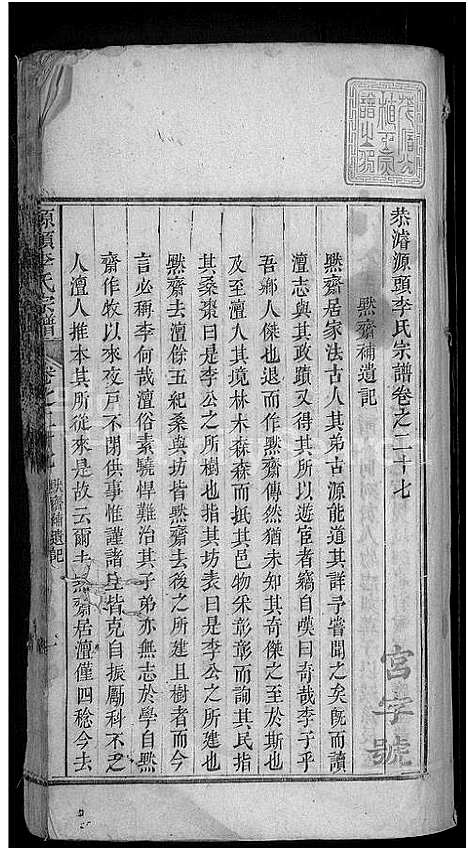 恭濬源頭李氏宗譜卷之二十七
㸃齋補遺記
㸃齋居家法古人其弟古源能道其詳予嘗聞之矣旣而讀
澶志與其政蹟又得其所以遊宦者竊自嘆曰奇哉李子乎
吾鄉人傑也退而作㸃齋傳然猶未知其奇傑之至於斯也
及至澶人其境林木森森而抵其邑物采彰彰而詢其民指
其桑棗曰是李公之所樹也指其坊表曰是李公之所建也
㸃齋去澶餘五紀桑與坊皆㸃齋去後之所建且樹者而今
言必稱李何哉澶俗素驍悍難治其子弟亦無志於學自㸃
齋作牧以來夜戸不閉供事惟謹諸生皆克自振勵科不乏
人澶人推本其所從來是故云爾 㸃齋居澶僅四稔今去
源頭李氏宗譜
卷之二十七
㸃齋補遺記
一
宮字號